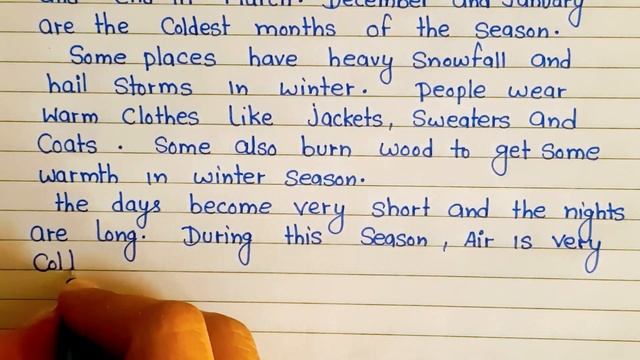 and end in March. December and January
are the Coldest months of the Season.
Some places have heavy Snowfall and
hail Storms in winter. People wear
Warm Clothes like Jackets, Sweaters and
Coats. Some also burn wood to get Some
warmth in winter Season.
the days become very short and the nights
are long. During this Season, Air is very
Col